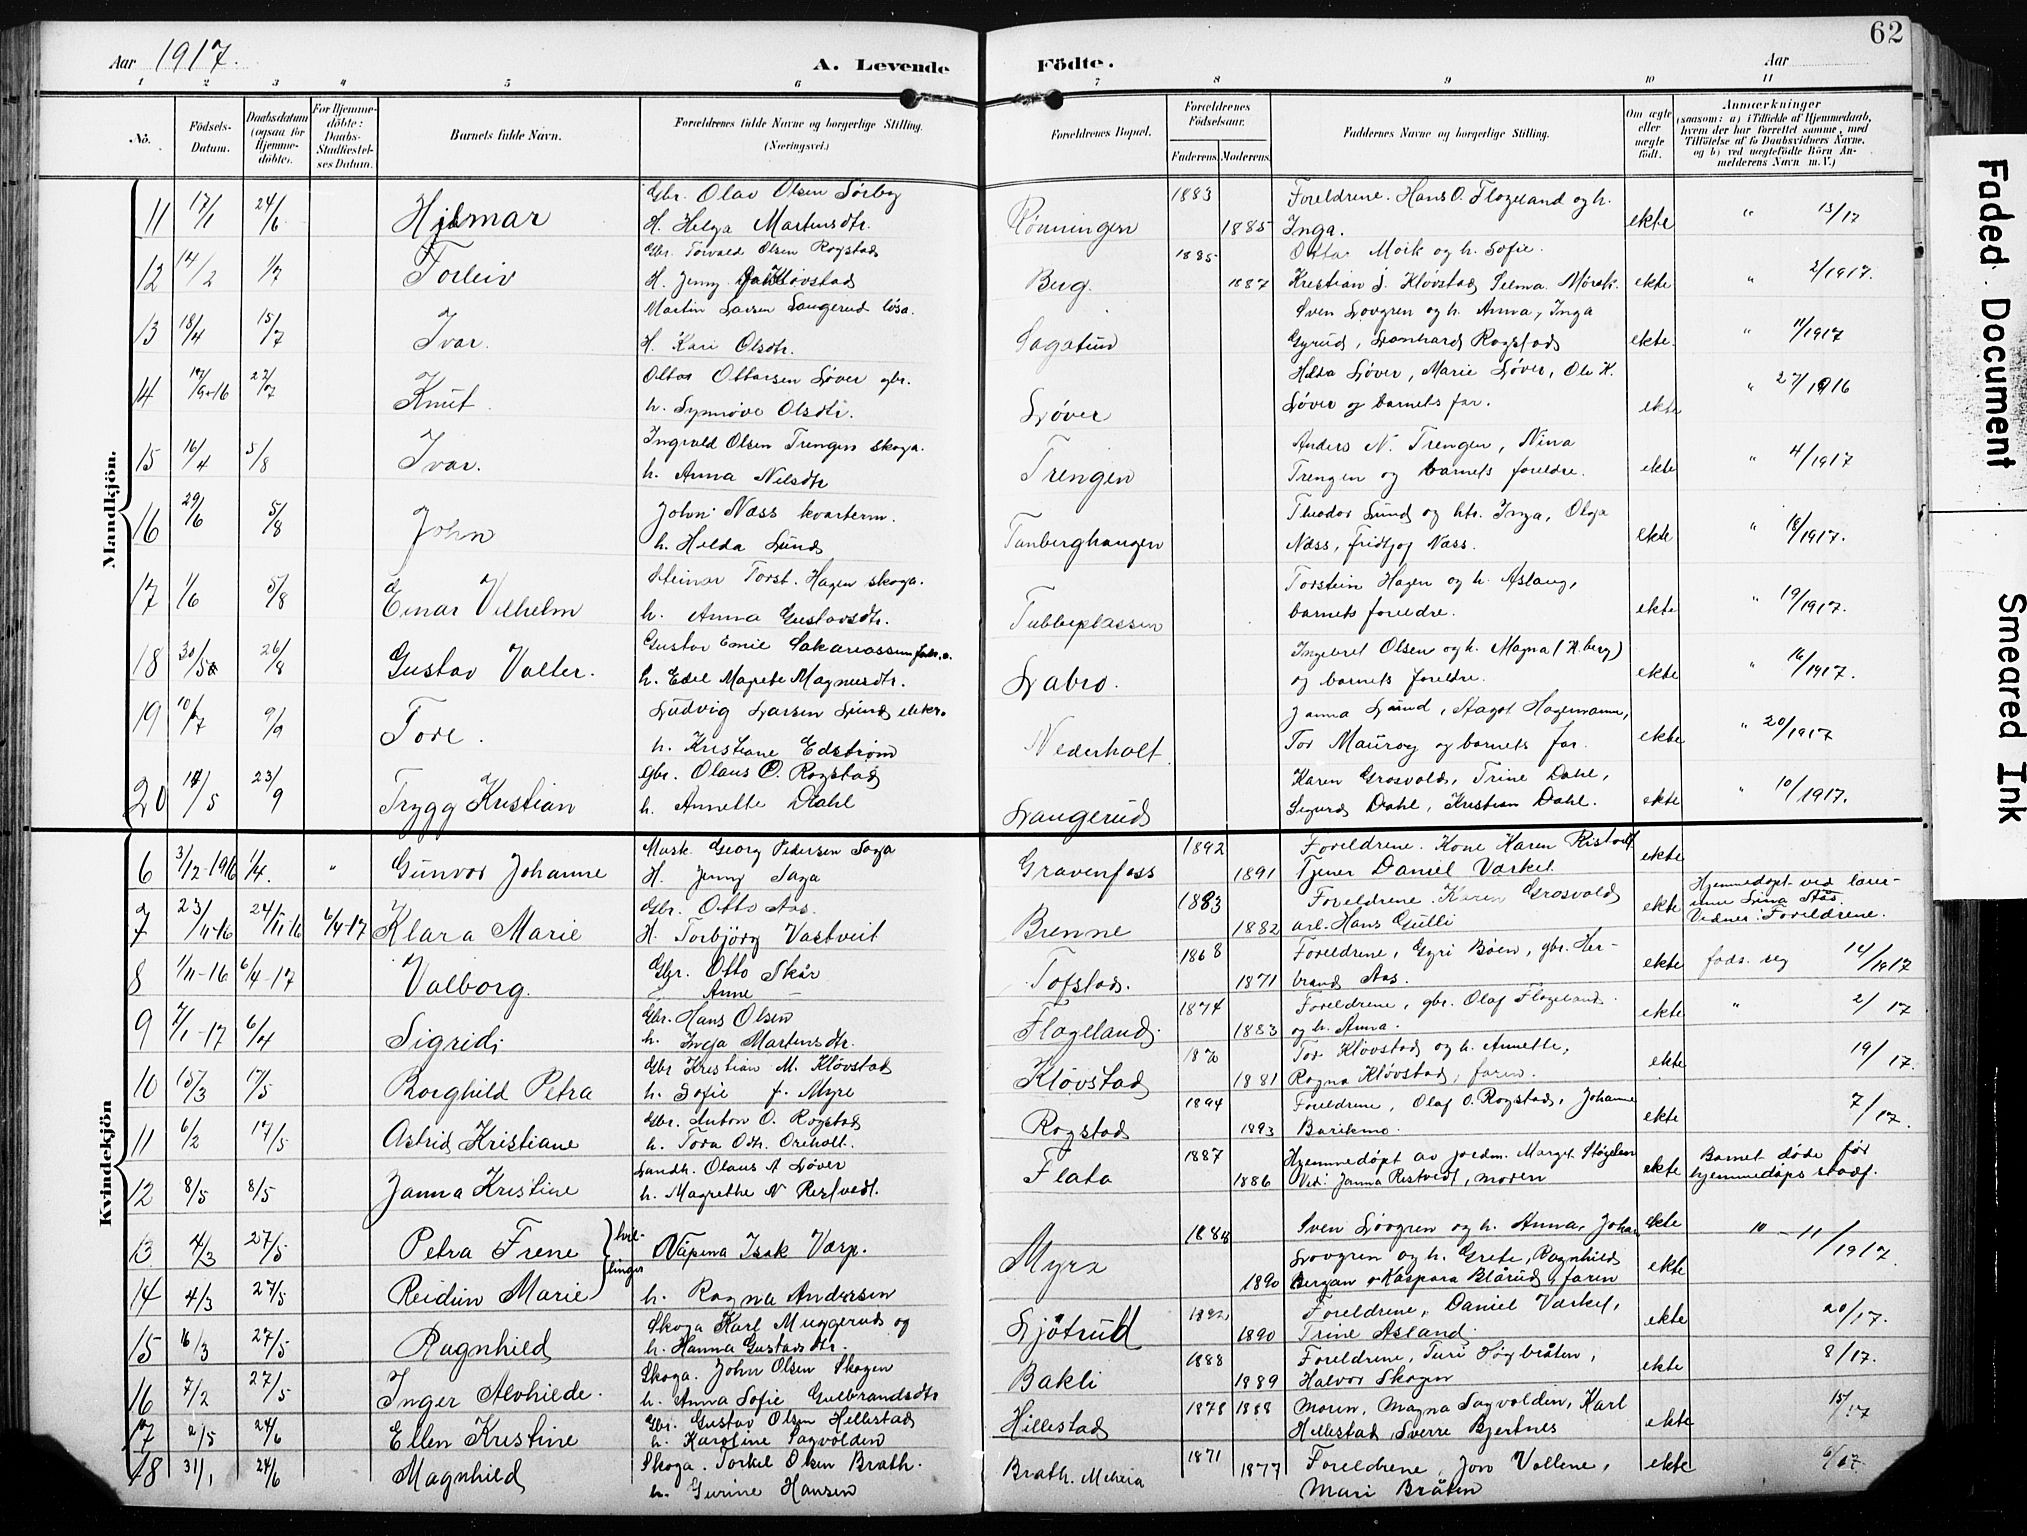 62
Aar 1917. A. Levende Födte. Aar
1 2 3 4 5 6 7 8 9 10 11
No. Födsels-Datum. Daabsdatum (ogsaa for Hjemme-döbte). For Hjemme-döbte: Daabs-Stadfæstel-ses Datum. Barnets fulde Navn. Forældrenes fulde Navne og borgerlige Stilling. (Næringsvei.) Forældrenes Bopæl. Forældrenes Födselsaar. Faderens. Moderens. Faddernes Navne og borgerlige Stilling. Om ægte eller uægte födt. Anmærkninger (saasom: a) i Tilfælde af Hjemmedaab, hvem der har forrettet samme, med Tilföielse af to Daabsvidners Navne, og b) ved uægtefödte Börn An-melderens Navn m. V.)
Mandkjön.
11 17/1 24/6 Hjalmar Gbr. Olav Olsen Sørby Rønningen 1883 Foreldrene. Hans O. Flogeland og h. ekte " 13/17
H. Helga Martinsdtr. 1885 Inga.
12 14/2 1/7 Torleiv Gbr. Torvald Olsen Rogstad Berg. 1885 Otto Moik og h. Sofie. ekte " 2/1917.
H. Jenny Kløvstad 1887 Kristian J. Kløvstad Selma Mørch.
13 18/4 15/7 Ivar. Martin Larsen Langerud løsa. Sagatun Sven Løvgren og h. Anna, Inga ekte. " 11/1917
H. Kari Olsdtr. Gyrud, Leonhard Rogstad
14 17/9-16 22/7 Knut. Ottar Ottarsen Løver gbr. Løver Hilda Løver, Marie Løver, Ole K. ekte " 27/1916
h. Synnøve Olsdtr. Løver og barnets far.
15 16/4 5/8 Ivar. Ingvald Olsen Trengen skoga. Trengen Anders N. Trengen, Nina ekte " 4/1917
h. Anna Nilsdtr Trengen og barnets foreldre.
16 29/6 5/8 John John Næss kvarterm. Tanberghaugen Theodor Lund og htr. Inga, Olga ekte " 18/1917.
h. Hilda Lund Næss, Fridtjof Næss.
17 1/6 5/8 Einar Vilhelm Steinar Torst. Hagen skoga. Tubbeplassen Torstein Hagen og h. Aslaug, ekte " 19/1917.
h. Anna Gustavsdtr. barnets foreldre.
18 30/5 26/8 Gustav Valter. Gustav Emil Sakariassen fabr.a. Labro. Ingebret Olsen og h. Magna (K.berg) ekte " 16/1917.
h. Edel Magrete Magnusdtr. og barnets foreldre.
19 10/7 9/9 Tore. Ludvig Larsen Lund elektr. Nederholt Janna Lund, Aagot Hagemann, ekte " 20/1917
h. Kristiane Edstrøm Tor Maurog og barnets far.
20 14/5 23/9 Trygg Kristian gbr. Olaus O. Rogstad Langerud Karen Grosvold, Trine Dahl, ekte " 10/1917.
h. Annette Dahl Sigurd Dahl, Kristian Dahl.
Kvindekjön
6 3/12-1916 1/4. " Gunvor Johanne Mask. Georg Pedersen Saga Gravenfoss 1892 Foreldrene. Kone Karen Ristvedt ekte
H. Jenny Saga 1891 Tjener Daniel Værkel.
7 23/11-16 24/11-16 6/4-17 Klara Marie Gbr. Otto Aas. Brenne 1883 Foreldrene. Karen Grosvold ekte Hjemmedøpt ved lærer-
H. Torbjørg Vastveit 1882 arb. Hans Gulli inne Lina Aas. Vidner: Foreldrene.
8 1/11-16 6/4-17 Valborg. Gbr. Otto Skår Tofstad. 1868 Foreldrene, Gyri Bøen, gbr. Her- ekte føds. reg 14/1917
Anne 1871 brand Aas.
9 7/1-17 6/4 Sigrid, Gbr. Hans Olsen Flogeland. 1874 Foreldrene, gbr. Olaf Flogeland. ekte " 2/17
h. Inga Martinsdtr. 1883 og h. Anna.
10 15/3 17/5 Borghild Petra Gbr Kristian M. Kløvstad Kløvstad 1870 Tor Kløvstad og h. Annette, ekte 19/17.
h. Sofie f. Myre 1881 Ragna Kløvstad, faren.
11 6/2 17/5 Astrid Kristiane Gbr. Anton O. Rogstad Rogstad 1894 Foreldrene, Olaf O. Rogstad, Johanne ekte 7/17.
h. Tora Odtr. Oreholt. 1893 Barikmo.
12 8/5 8/5 Janna Kristine Landh. Olaus A Løver Flata 1887 Hjemmedøpt av jordm. Marget Støgelen ekte Barnet døde før
h. Magrethe N Ristvedt. 1886 Vid: Janna Ristvedt, moren hjemmedåps stadf.
13 4/3 27/5 Petra Irene } tvil- Våpenm Isak Varp. Myra 1884 Sven Løvgren og h. Anna, Johan ekte 10 – 11/1917
14 4/3 27/5 Reidun Marie } linger h. Ragna Andersen 1890 Løvgren og h. Grete, Ragnhild Bergan & Kaspara Blårud, faren ekte
15 16/3 27/5 Ragnhild Skoga Karl Muggerud og Ljøterud 1892 Foreldrene, Daniel Værkel, ekte 20/17.
h. Hanna Gustavsdtr. 1890 Trine Asland.
16 7/2 27/5 Inger Alvhilde. Skoga. John Olsen Skogen Bakli 1888 Foreldrene, Turi Høgbråten, ekte 8/17.
h. Anna Sofie Gulbrandsdtr 1889 Halvor Skogen
17 2/5 24/6 Ellen Kristine Gbr. Gustav Olsen Hillestad Hillestad 1878 1888 Moren, Magna Sagvolden, Karl ekte 15/17
h. Karoline Sagvolden Hillestad, Sverre Bjertnes
18 31/1 24/6 Magnhild Skoga. Torkel Olsen Brath. Brath. Meheia 1871 1877 Foreldrene, Jon Vollene, ekte 6/17
h. Gurine Hansen Mari Bråten
Faded Document
Smeared Ink